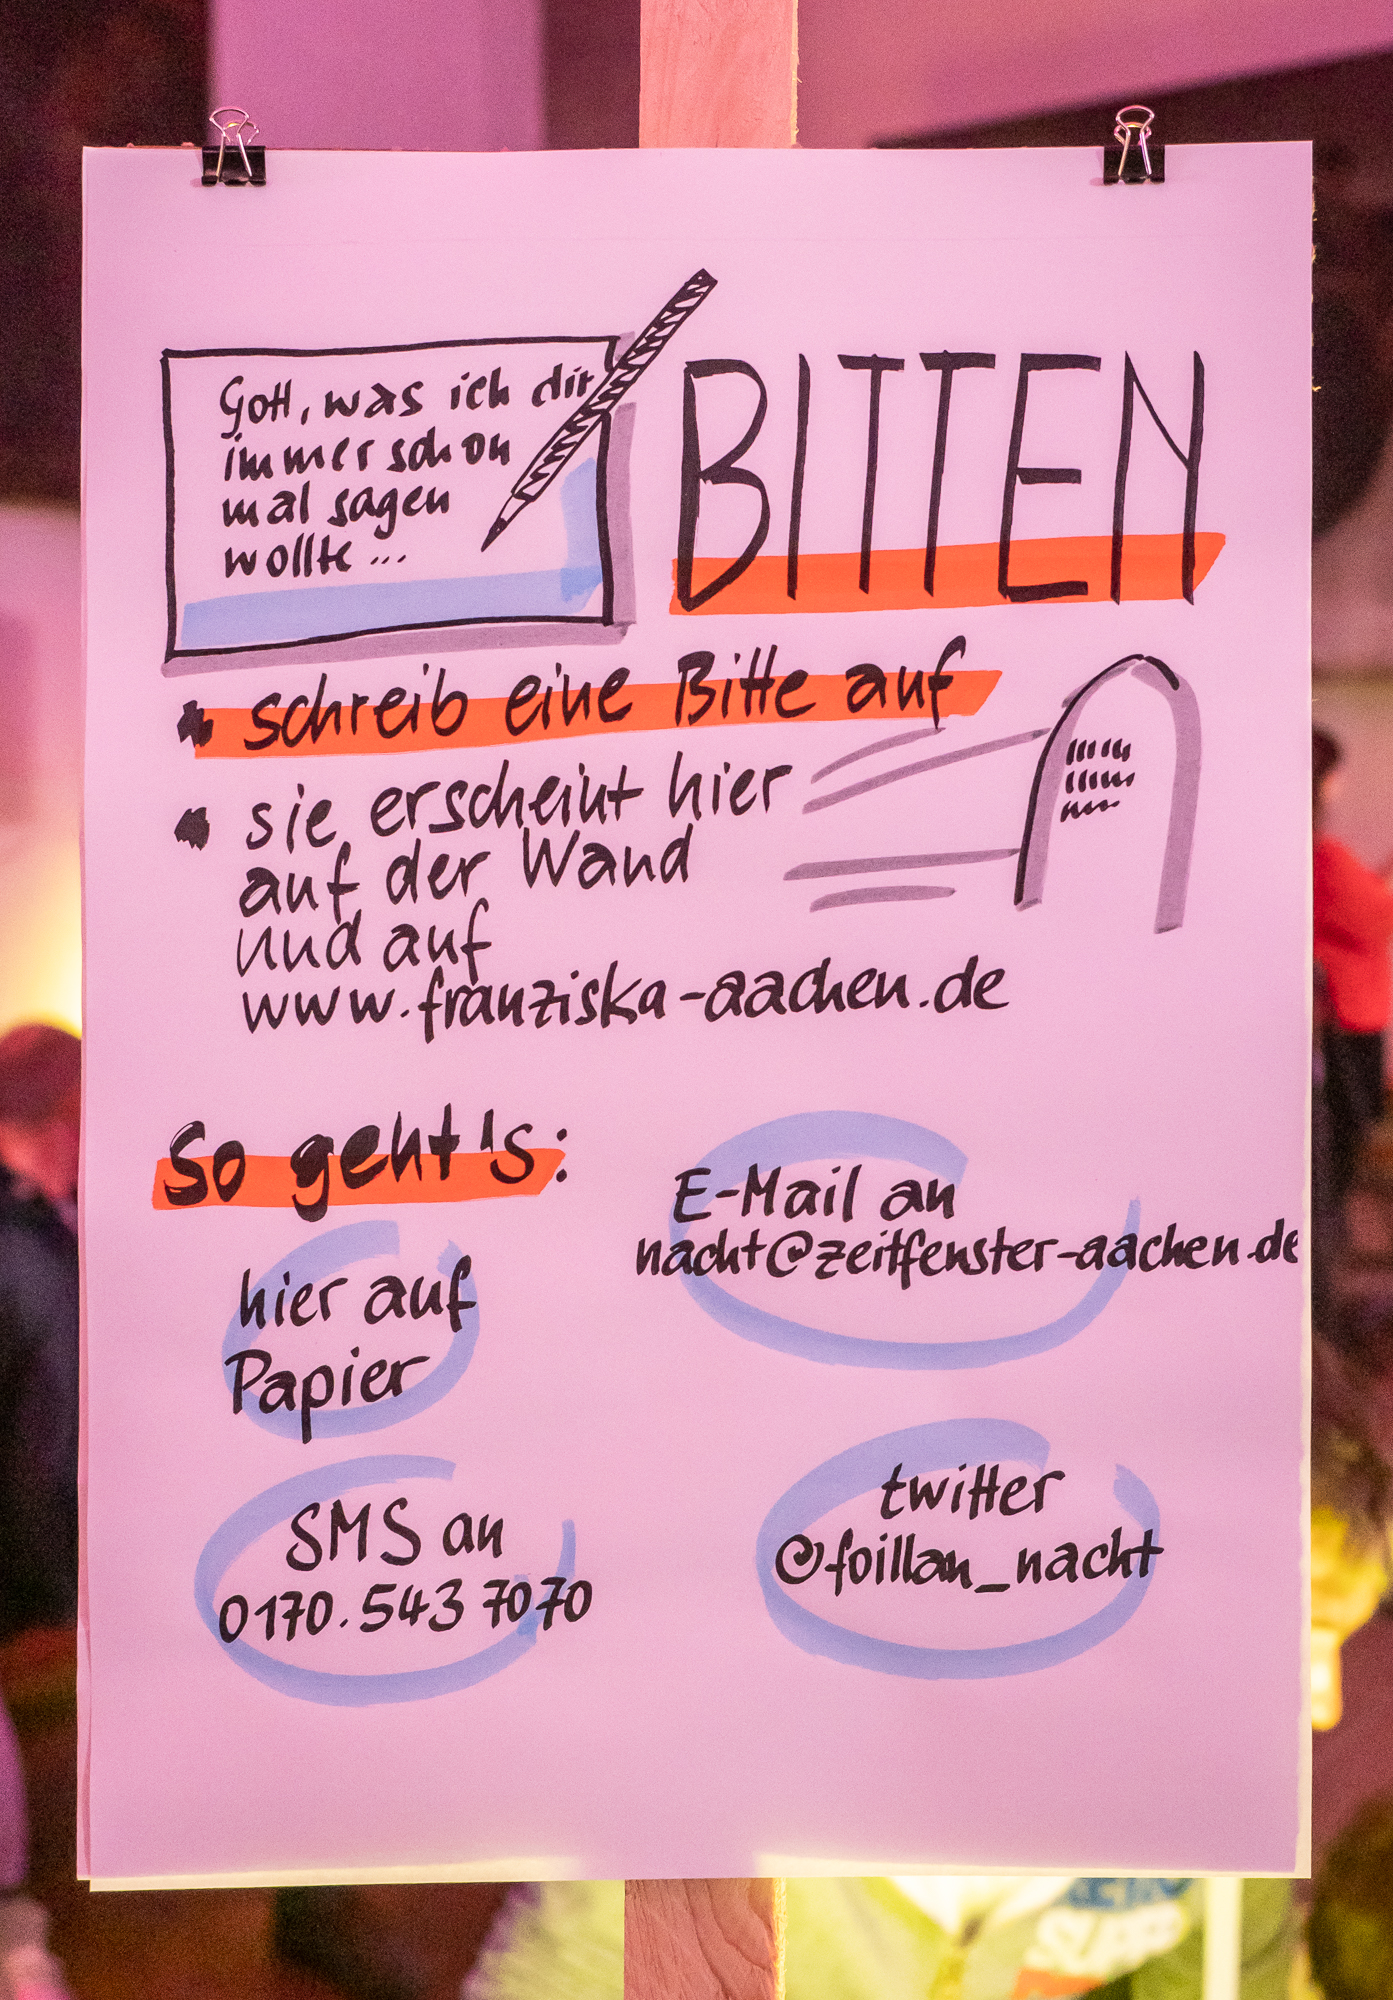 Gott, was ich dir
immer schon
mal sagen
wollte...
BITTEN
schreib eine Bitte auf
sie erscheint hier
auf der Wand
und auf
www.franziska-aachen.de
So geht's:
hier auf
Papier
E-Mail an
nacht@zeitfenster-aachen.de
SMS an
0170.543 7070
twitter
@foillan_nacht